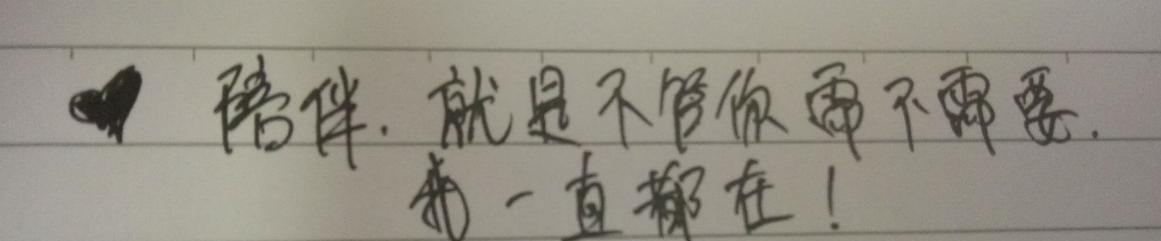 ♥ 陪伴.就是不管你需不需要.
我一直都在!